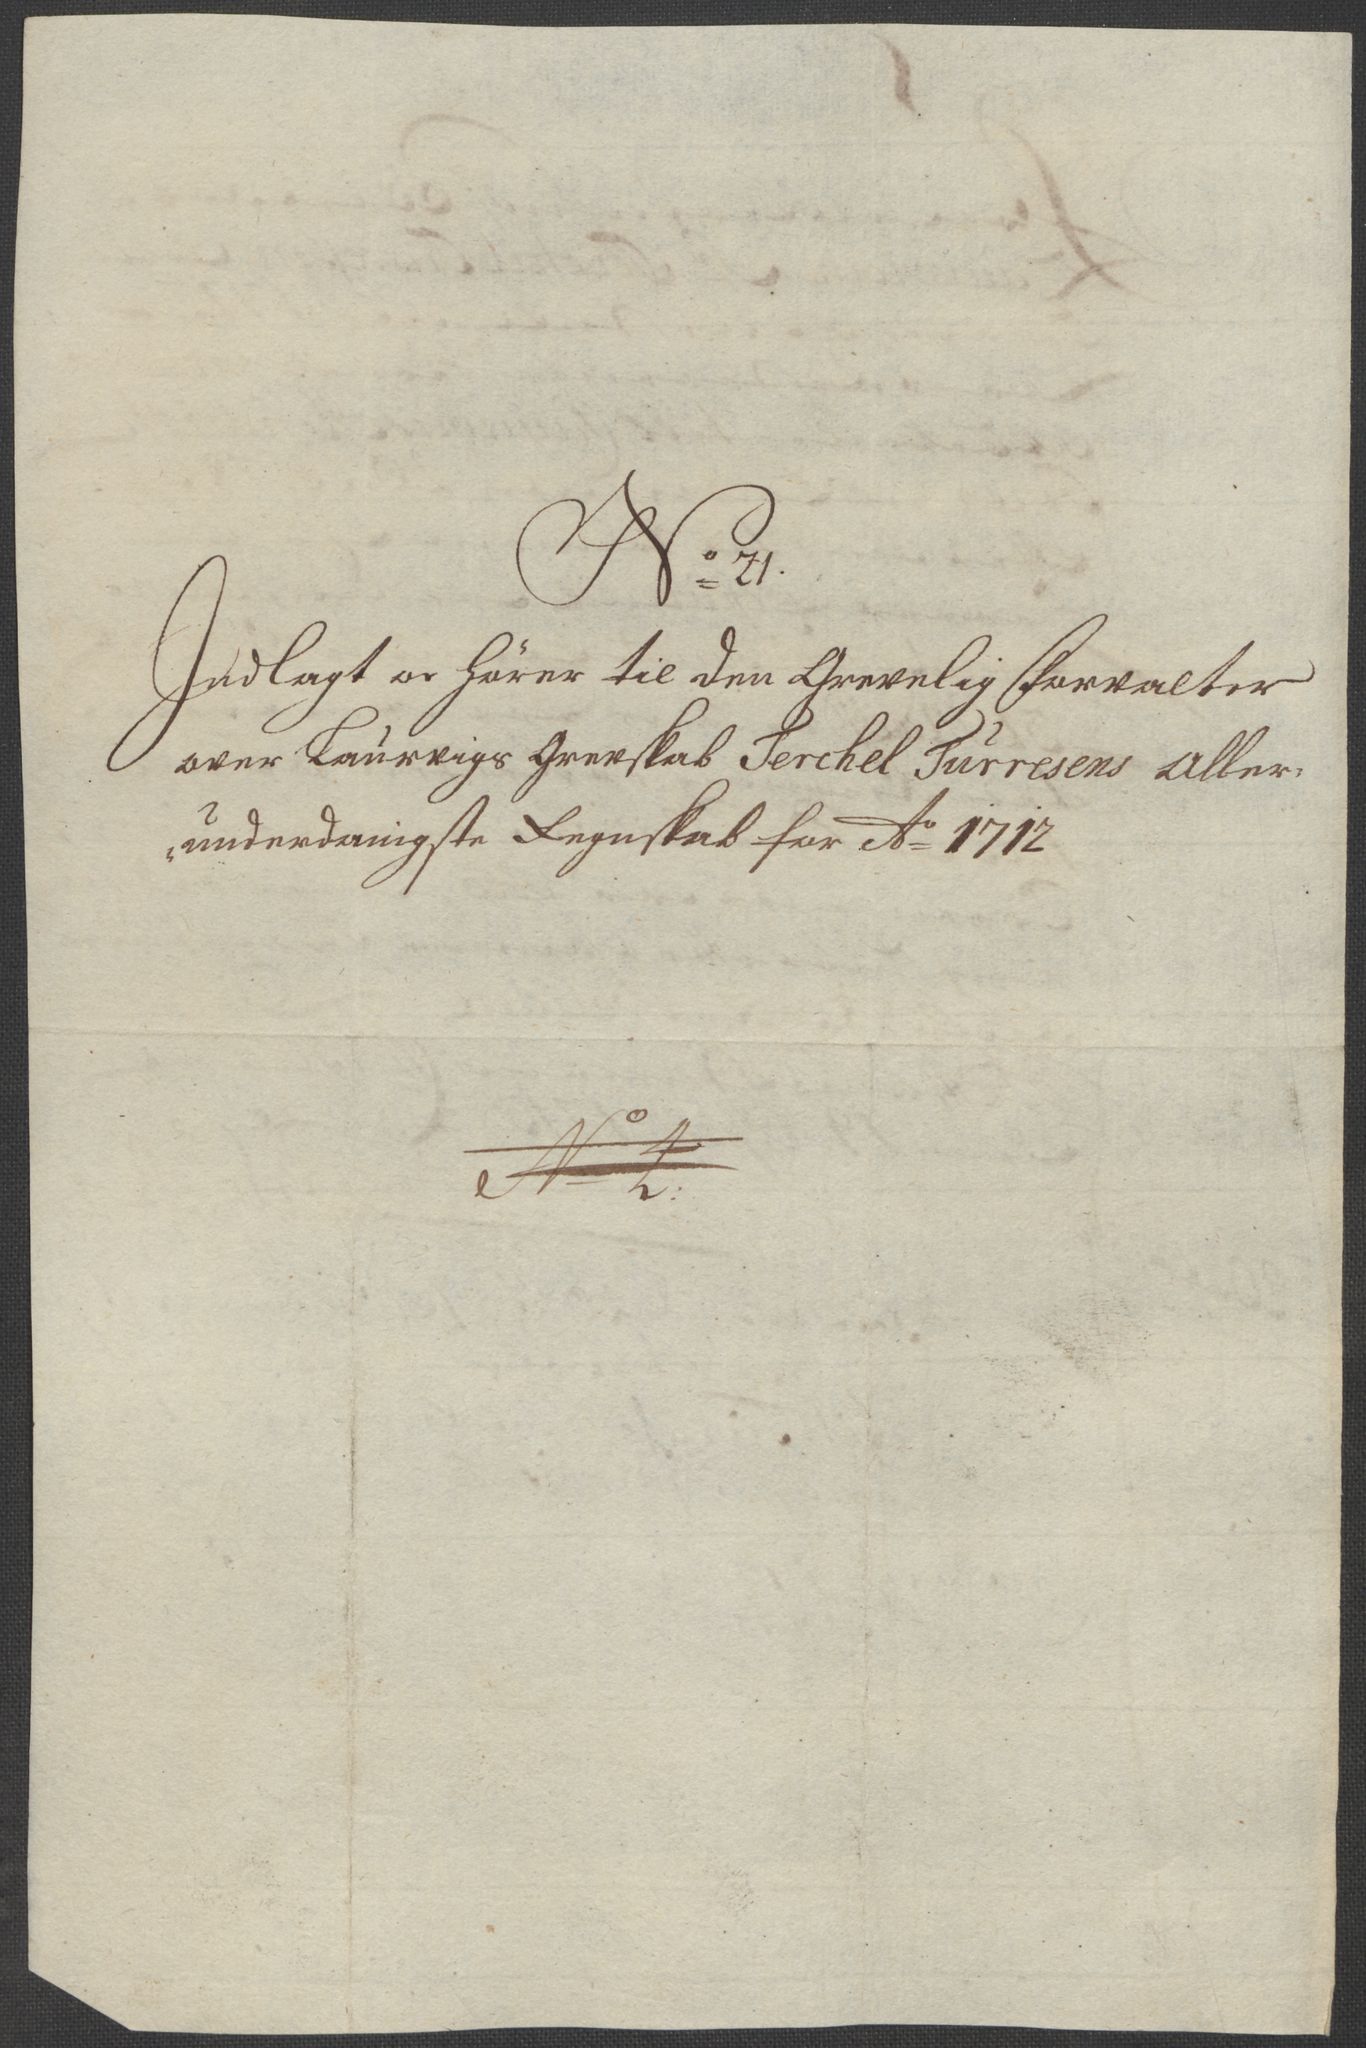 No 21.
Indlagt oc hörer til den Grevelig Forvalter
over Laurvigs Grevskab Terchel Turresens Aller-
underdanigste Regnskab for Ao 1712
No 4: